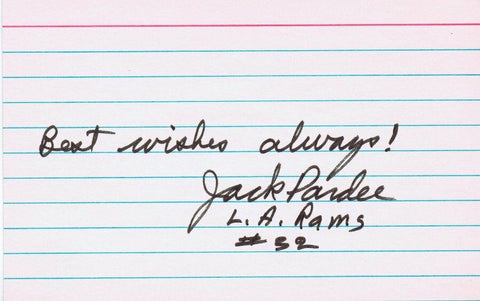 Best wishes always!
Jack Pardee
L.A. Rams
# 32